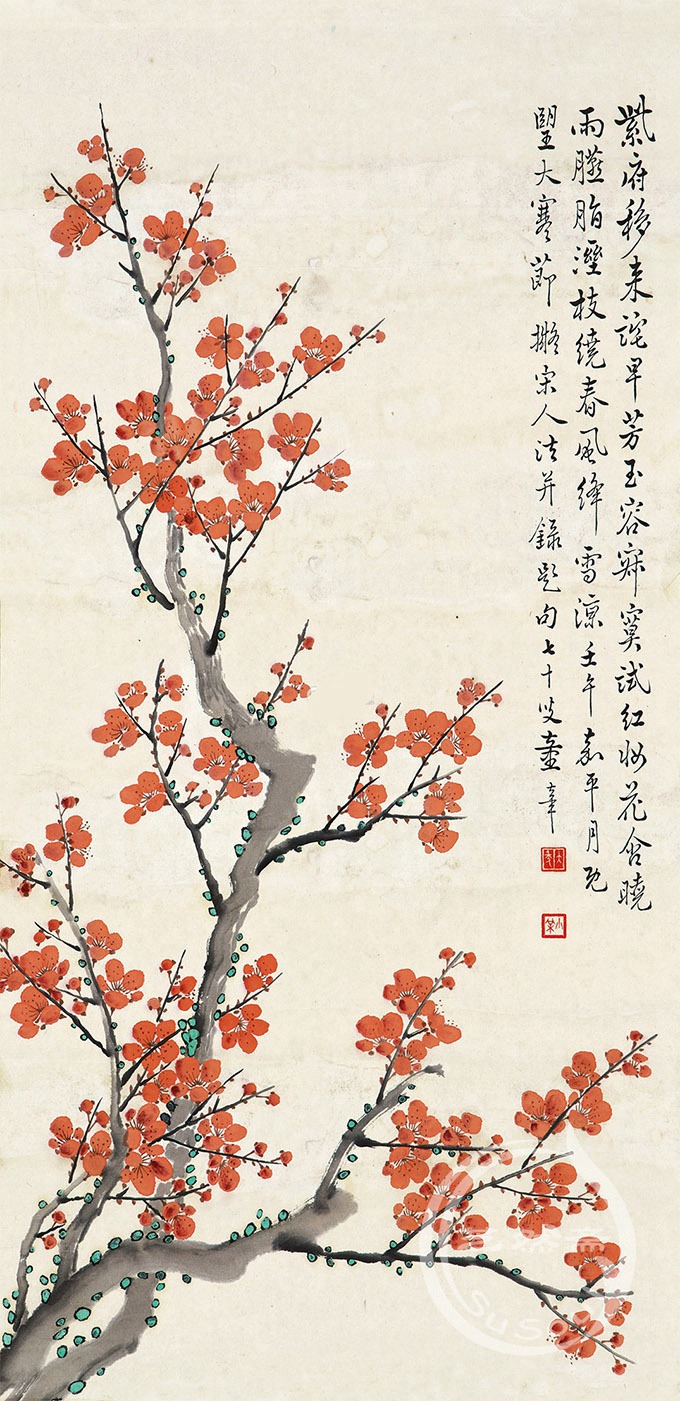 紫府移来詫早芳玉容寂寞試红妝花含曉
雨臙脂溼枝繞春風绛雪凉壬午嘉平月既
朢大寒節擬宋人法并録題句七十叟